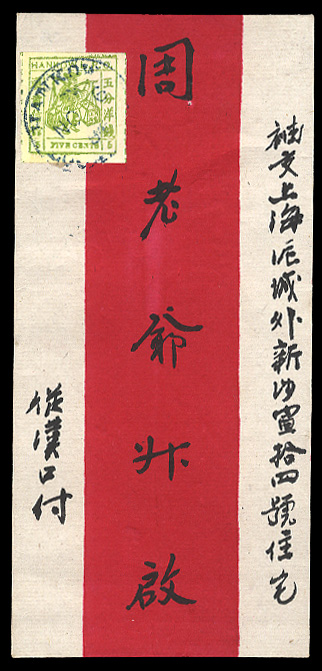 袖交上海沪城外新沙寅拾四號住宅
周老爺升啟
從漢口付
HANKOW
五分洋銀
5
FIVE CENTS